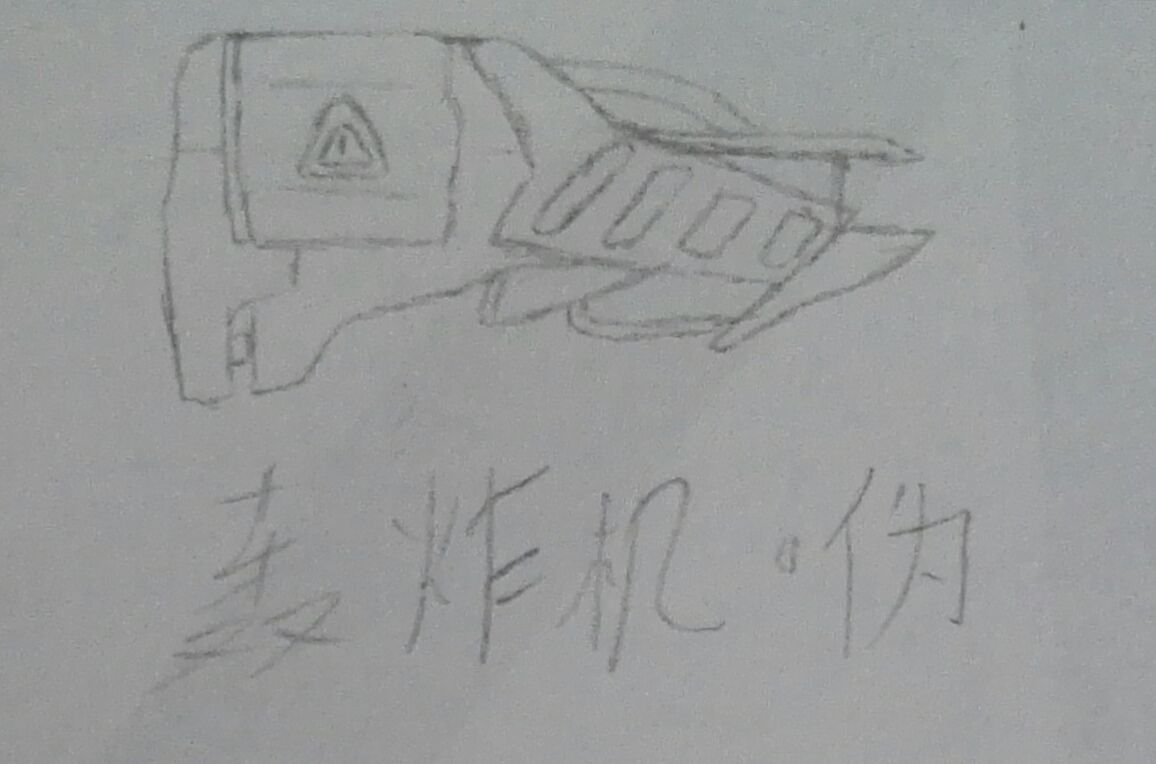 轰炸机·伪